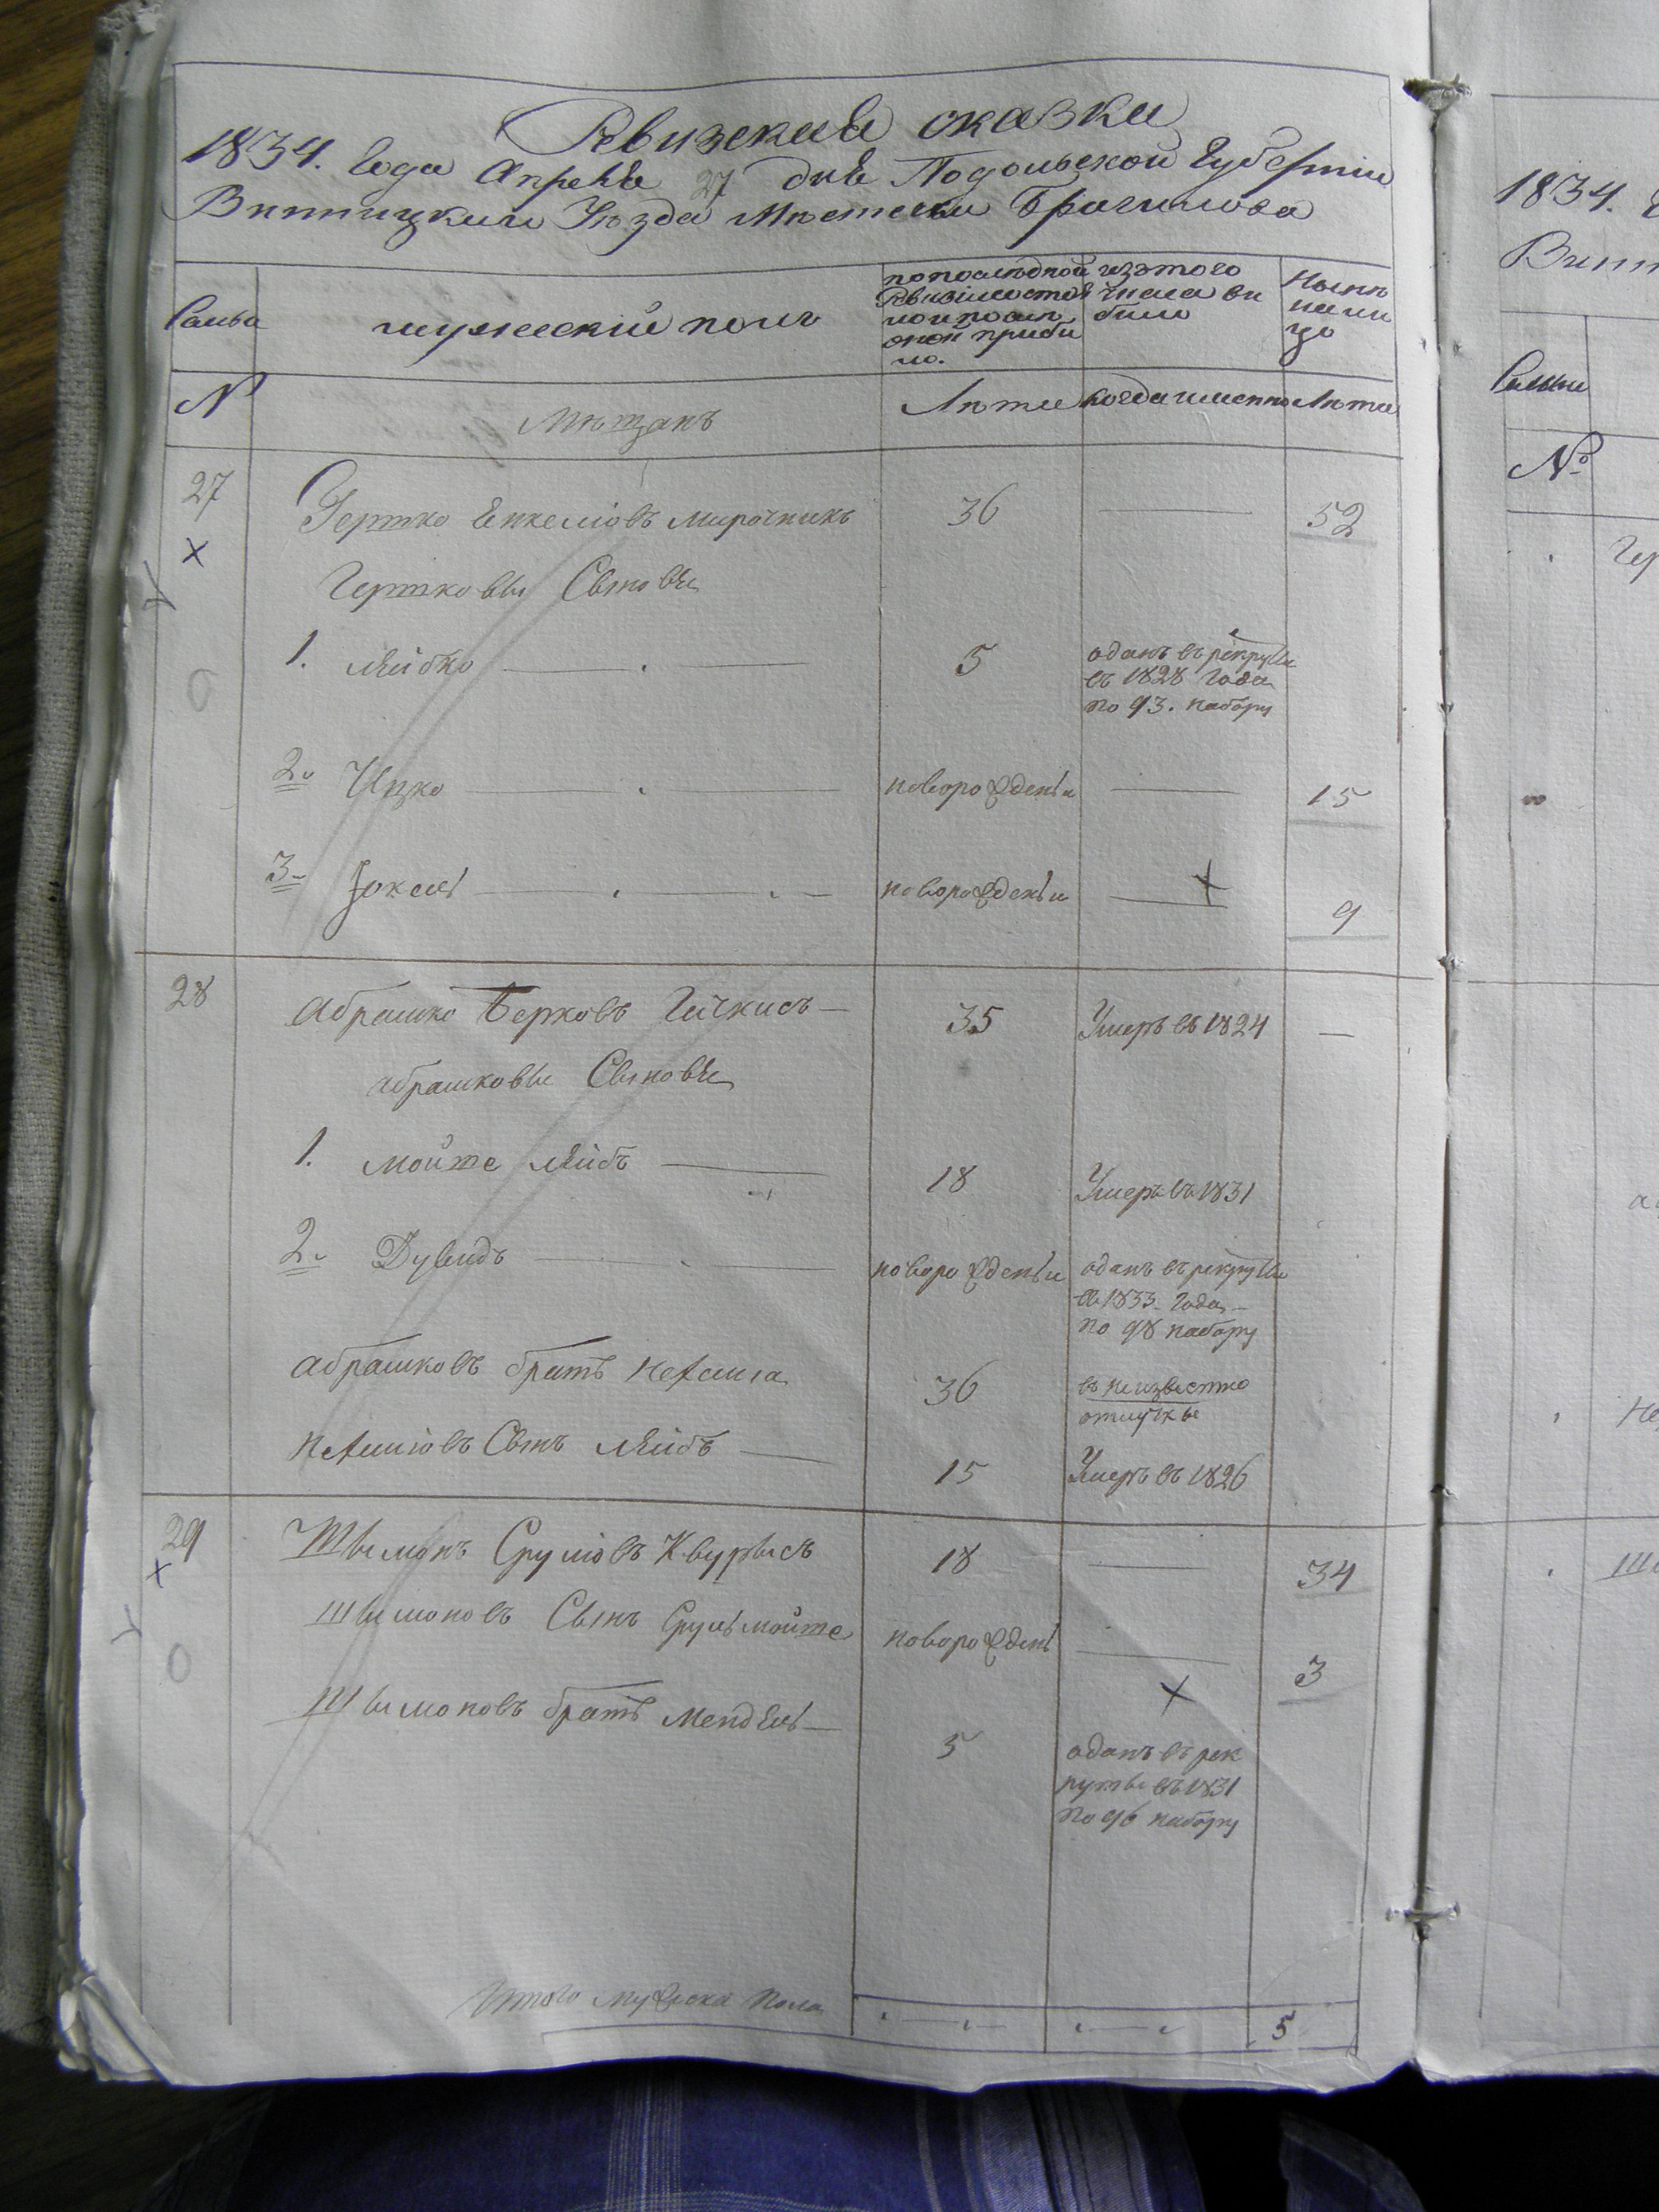 Ревизские сказки
1834. Года Апреля 27 дня Подольской Губернии
Винницкаго Уѣзда Мѣстечка Браги­лова
Семьа
мужеский полъ
по последной Ревизии состояло и после оной прибило.
изъ того числа выбило
Нынѣ налицо
№
Мѣщанъ
Лѣта
Когда именно
Лѣта
27
Гершко Енкелiовъ Мирочникъ
36
52
Гершковы Сыновья
1. Лейбко
5
одань въ рекруты
въ 1828 Года
по 93. набору
2. Ицко
новорожденьи
15
3. Иокель
новорожденьи
9
28
Абрашко Берковъ Гичкисъ
35
Умеръ въ 1824
абрашковы Сыновья
1. Мойше Лейбъ
18
Умеръ въ 1831
2. Дувидъ
новорожденьи
оданъ въ рекруты
въ 1833 Года
по 98 набору
абрашковъ братъ Нехемiа
36
въ неизвестно
отлучке
Нехемiовъ Сынъ Лейбъ
15
Умеръ въ 1826
29
Шымонъ Срулiовъ Квурысъ
18
34
Шымоновъ Сынъ Сруль Мойше
новорождень
3
Шымоновъ братъ Мендель
5
оданъ въ рек
руты въ 1831
по 96 набору
Итого мужеска пола
5
1834.
Винн
Семьи
№
Гер
Не